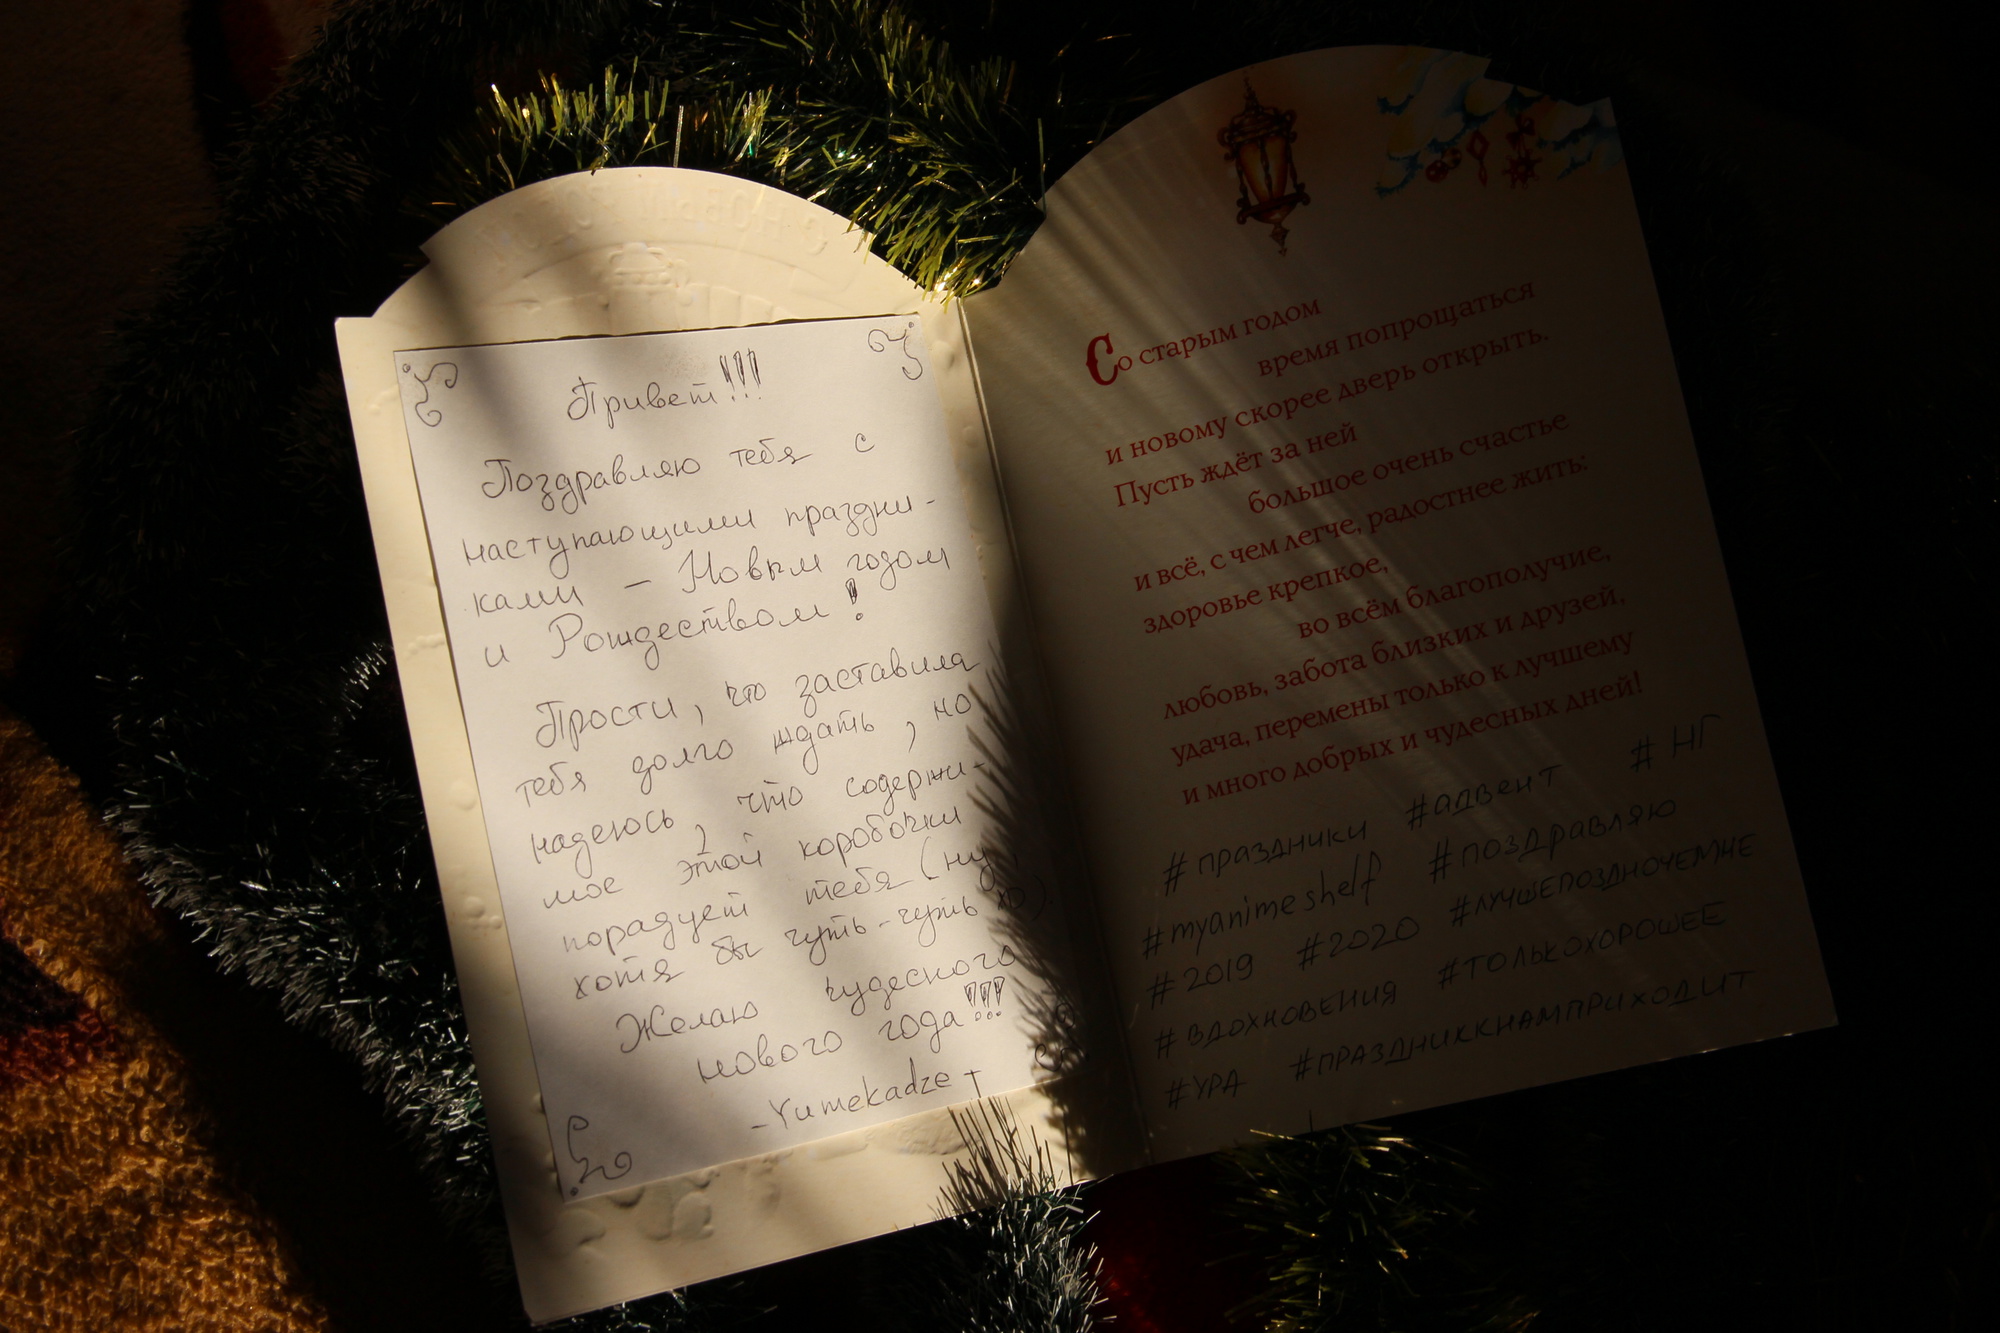 Привет!!!
Поздравляю тебя с
наступающими праздни-
ками - Новым годом
и Рождеством!
Прости, что заставила
тебя долго ждать, но
надеюсь, что содержи-
мое этой коробочки
порадует тебя (ну,
хотя бы чуть-чуть xD).
Желаю чудесного
нового года!!!
-Yumekadze
Со старым годом
время попрощаться
и новому скорее дверь открыть.
Пусть ждёт за ней
большое очень счастье
и всё, с чем легче, радостнее жить:
здоровье крепкое,
во всём благополучие,
любовь, забота близких и друзей,
удача, перемены только к лучшему
и много добрых и чудесных дней!
#праздники #адвент #НГ
#myanimeshelf #поздравляю
#2019 #2020 #ЛУЧШЕПОЗДНОЧЕМНЕ
#ВДОХНОВЕНИЯ #ТОЛЬКОХОРОШЕЕ
#УРА #ПРАЗДНИККНАМПРИХОДИТ